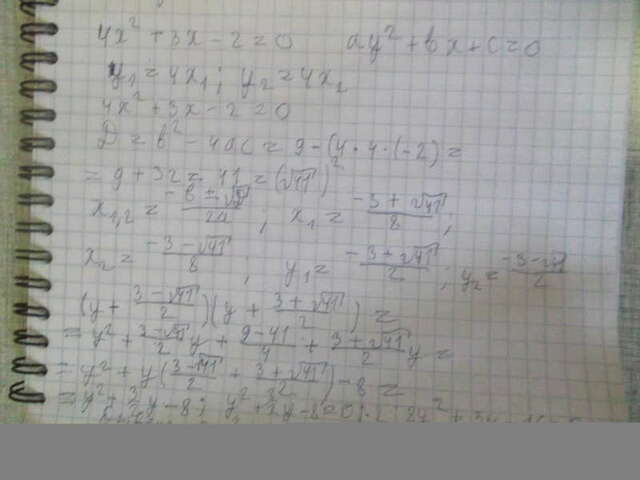 4x² + 3x - 2 = 0    ay² + bx + c = 0
y₁ = 4x₁; y₂ = 4x₂
4x² + 3x - 2 = 0
D = b² - 4ac = 9 - (4·4·(-2) =
= 9 + 32 = 41 = (√41)²
x₁,₂ = (-b ± √D)/2a ; x₁ = (-3 + √41)/8 ;
x₂ = (-3 - √41)/8 ; y₁ = (-3 + √41)/2 ; y₂ = (-3 - √41)/2
(y + (3 - √41)/2)(y + (3 + √41)/2) =
= y² + (3 - √41)/2 y + (9 - 41)/4 + (3 + √41)/2 y =
= y² + y((3 - √41)/2 + (3 + √41)/2) - 8 =